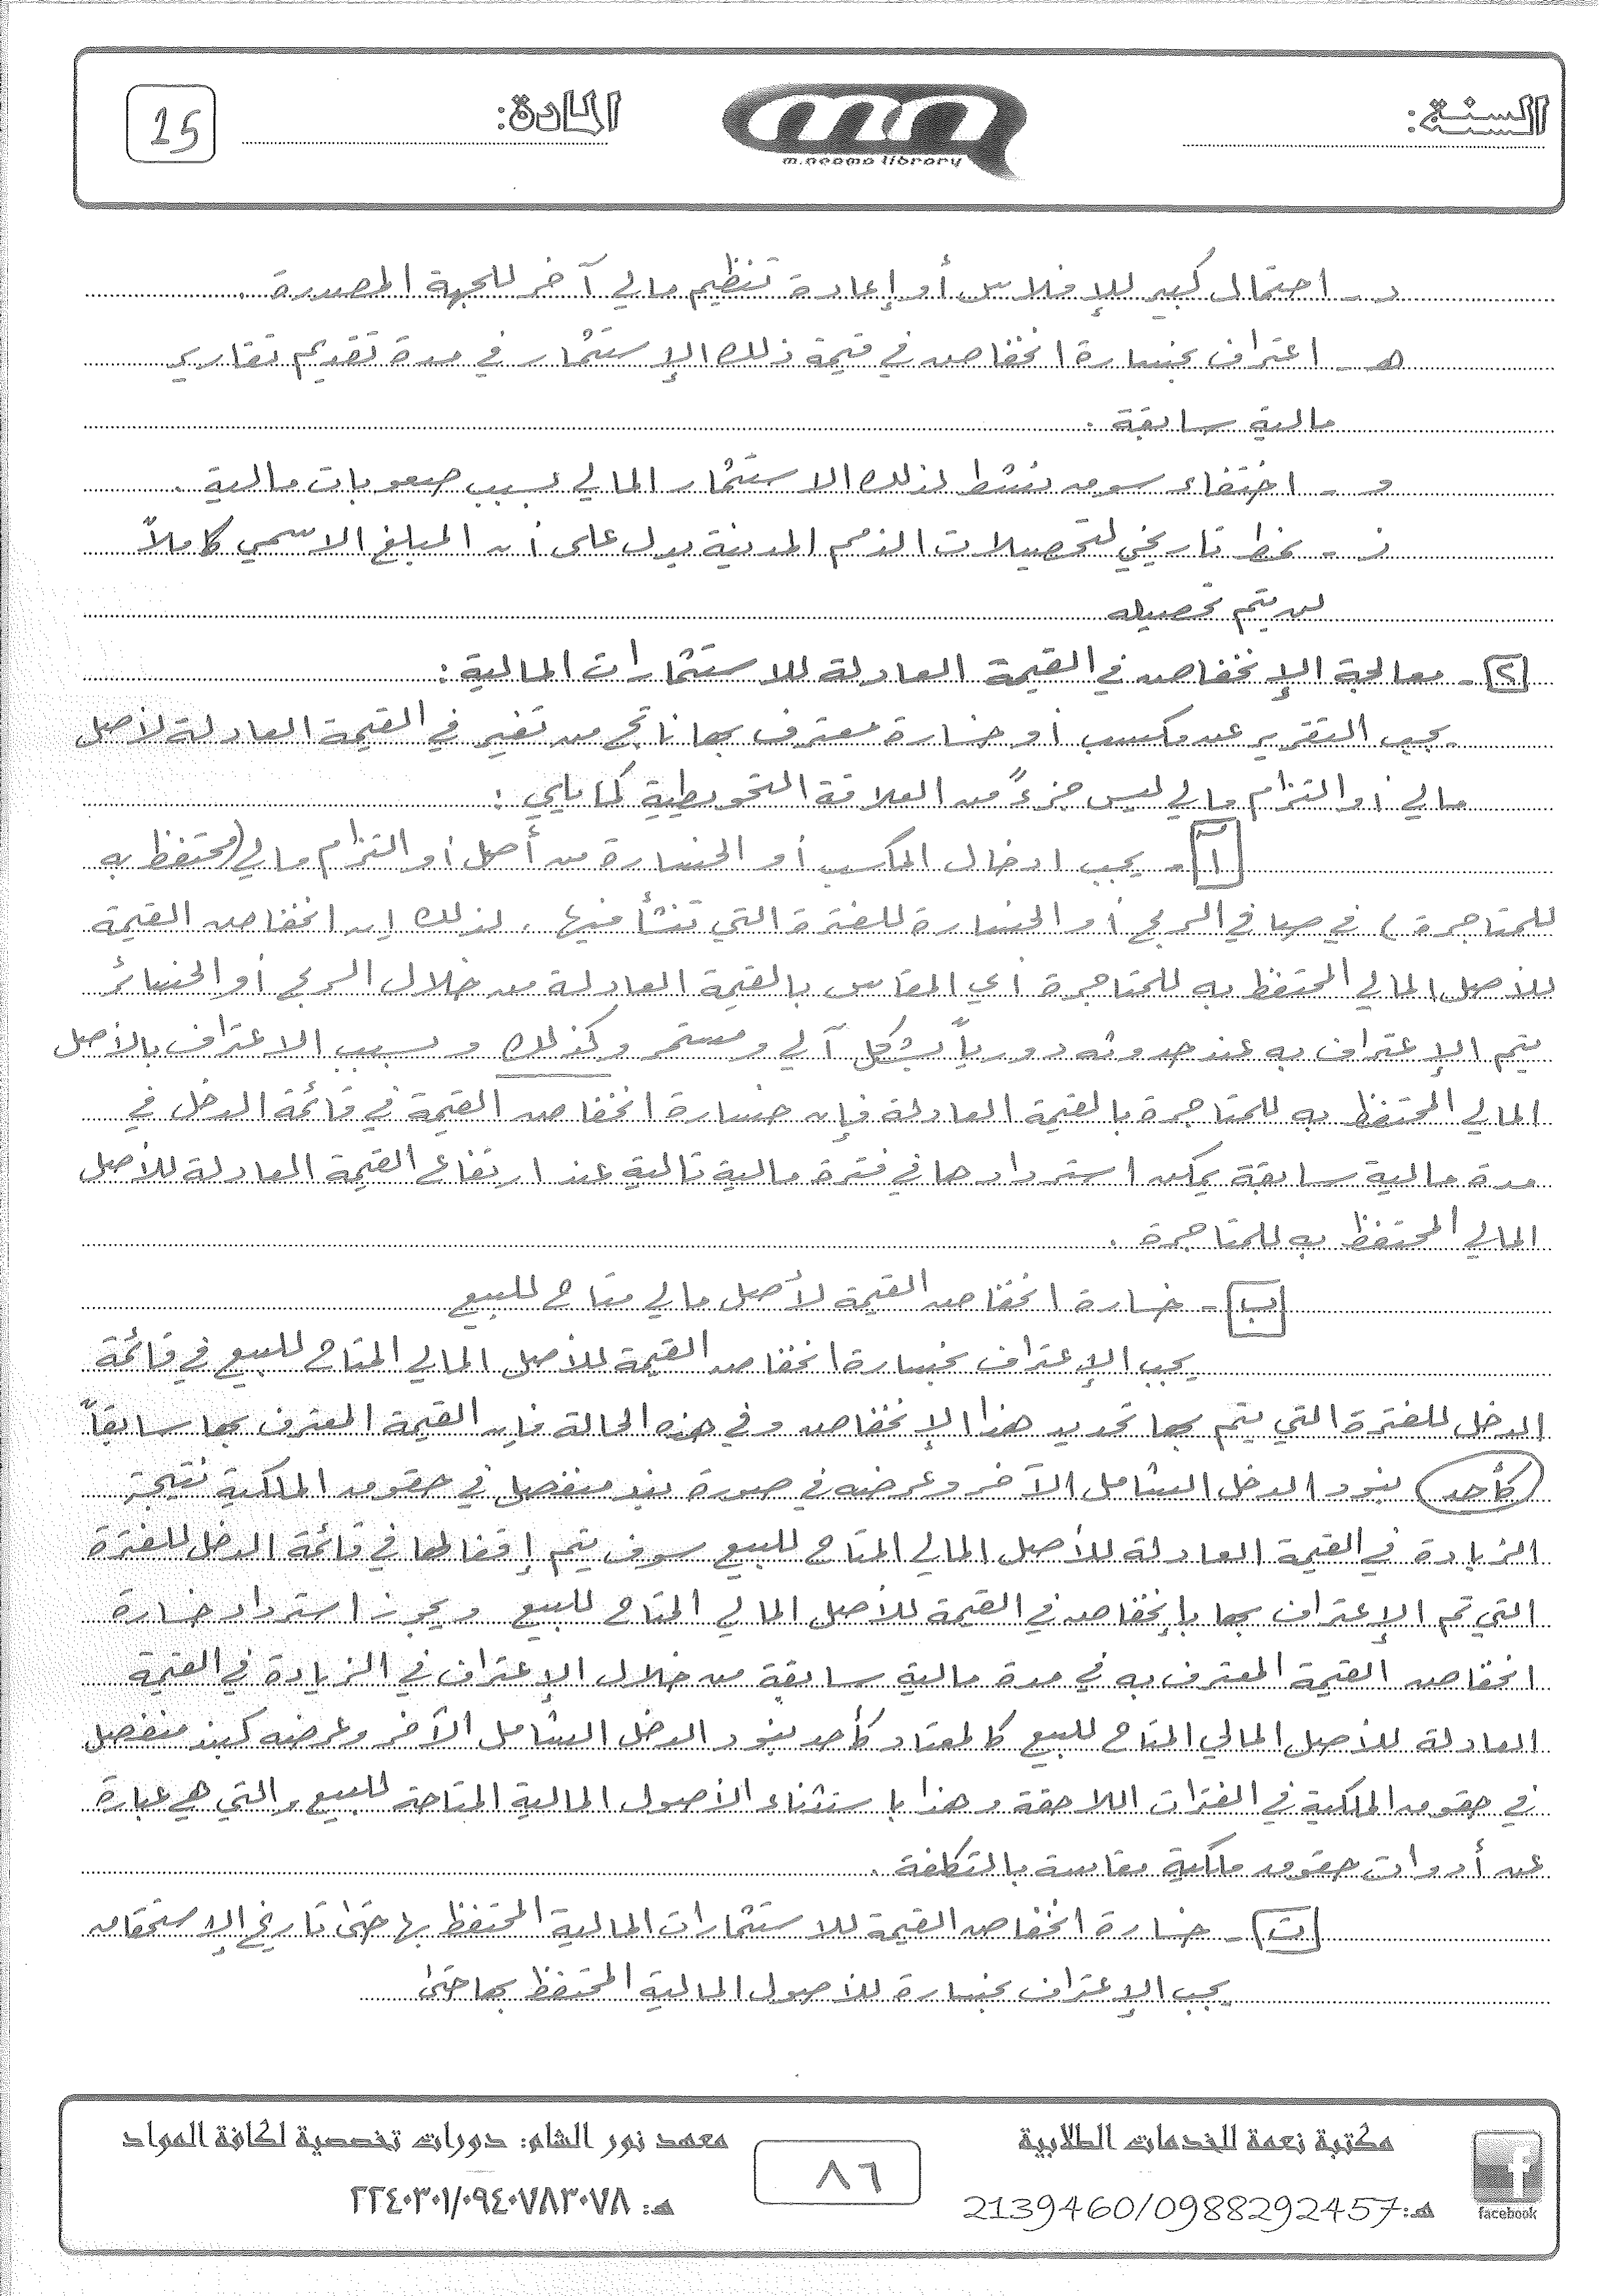 السنة:
المادة:
15
m.neama library
د - احتمال كبير للإفلاس أو إعادة تنظيم مالي آخر للجهة المصدرة .
هـ - اعتراف بخسارة انخفاض في قيمة ذلك الإستثمار في مدة تقديم تقارير
مالية سابقة .
و - اختفاء سوق نشط لذلك الاستثمار المالي بسبب صعوبات مالية .
ز - نمط تاريخي لتحصيلات الذمم المدينة يدل على أن المبلغ الاسمي كاملاً
لن يتم تحصيله
٢ - معالجة الإنخفاض في القيمة العادلة للاستثمارات المالية :
يجب التقرير عن مكسب أو خسارة معترف بها ناتج من تغير في القيمة العادلة لأصل
مالي أو التزام مالي ليس جزءً من العلاقة التحوطية كما يلي :
أ - يجب ادخال المكسب أو الخسارة من أصل أو التزام مالي (محتفظ به
للمتاجرة) في صافي الربح أو الخسارة للفترة التي تنشأ فيها ، لذلك إن انخفاض القيمة
للأصل المالي المحتفظ به للمتاجرة أي المقاس بالقيمة العادلة من خلال الربح أو الخسائر
يتم الإعتراف به عند حدوثه دورياً بشكل آلي ومستمر وكذلك وبسبب الاعتراف بالأصل
المالي المحتفظ به للمتاجرة بالقيمة العادلة فإن خسارة انخفاض القيمة في قائمة الدخل في
مدة مالية سابقة يمكن استردادها في فترة مالية تالية عند ارتفاع القيمة العادلة للأصل
المالي المحتفظ به للمتاجرة .
ب - خسارة انخفاض القيمة لأصل مالي متاح للبيع
يجب الإعتراف بخسارة انخفاض القيمة للأصل المالي المتاح للبيع في قائمة
الدخل للفترة التي يتم بها تحديد هذا الإنخفاض وفي هذه الحالة فإن القيمة المعترف بها سابقاً
كأحد بنود الدخل الشامل الآخر وعرضه في صورة بند منفصل في حقوق الملكية نتيجة
الزيادة في القيمة العادلة للأصل المالي المتاح للبيع سوف يتم إقفالها في قائمة الدخل للفترة
التي تم الإعتراف بها بإنخفاض في القيمة للأصل المالي المتاح للبيع ويجوز استرداد خسارة
انخفاض القيمة المعترف به في مدة مالية سابقة من خلال الإعتراف في الزيادة في القيمة
العادلة للأصل المالي المتاح للبيع كالمعتاد كأحد بنود الدخل الشامل الآخر وعرضه كبند منفصل
في حقوق الملكية في الفترات اللاحقة وهذا باستثناء الأصول المالية المتاحة للبيع والتي هي عبارة
عن أدوات حقوق ملكية مقاسة بالتكلفة .
ت - خسارة انخفاض القيمة للاستثمارات المالية المحتفظ بها حتى تاريخ الإستحقاق
يجب الإعتراف بخسارة للأصول المالية المحتفظ بها حتى
مكتبة نعمة للخدمات الطلابية
هـ: 2139460/0988292457
facebook
٨٦
معهد نور الشام: دورات تخصصية لكافة المواد
هـ: ٢٢٤٠٣٠١/٠٩٤٠٧٨٣٠٧٨